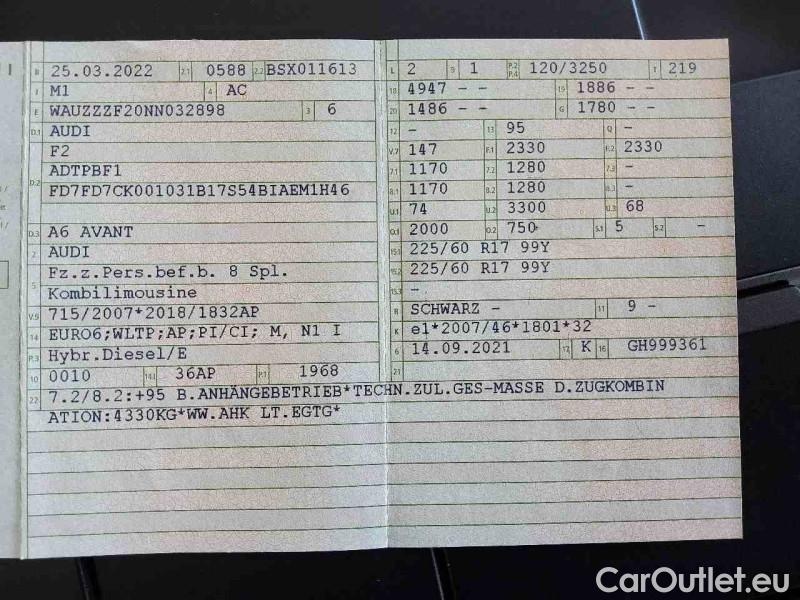 B 25.03.2022 2.1 0588 2.2 BSX011613
J M1 4 AC
E WAUZZZF20NN032898 3 6
D.1 AUDI
F2
ADTPBF1
D.2 FD7FD7CK001031B17S54BIAEM1H46
D.3 A6 AVANT
2 AUDI
5 Fz.z.Pers.bef.b. 8 Spl.
Kombilimousine
V.9 715/2007*2018/1832AP
14 EURO6;WLTP;AP;PI/CI; M, N1 I
P.3 Hybr.Diesel/E
10 0010 14.1 36AP P.1 1968
22 7.2/8.2:+95 B.ANHÄNGEBETRIEB*TECHN.ZUL.GES-MASSE D.ZUGKOMBIN
ATION:4330KG*WW.AHK LT.EGTG*
L 2 9 1 P.2 P.4 120/3250 T 219
18 4947 - - 19 1886 - -
20 1486 - - G 1780 - -
12 - 13 95 Q -
V.7 147 F.1 2330 F.2 2330
7.1 1170 7.2 1280 7.3 -
8.1 1170 8.2 1280 8.3 -
U.1 74 U.2 3300 U.3 68
O.1 2000 O.2 750 S.1 5 S.2 -
15.1 225/60 R17 99Y
15.2 225/60 R17 99Y
15.3 -
R SCHWARZ - 11 9 -
K e1*2007/46*1801*32
6 14.09.2021 17 K 16 GH999361
CarOutlet.eu